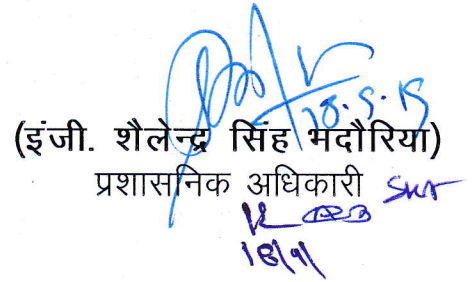 18.9.19
(इंजी. शैलेन्द्र सिंह भदौरिया)
प्रशासनिक अधिकारी
18/9/